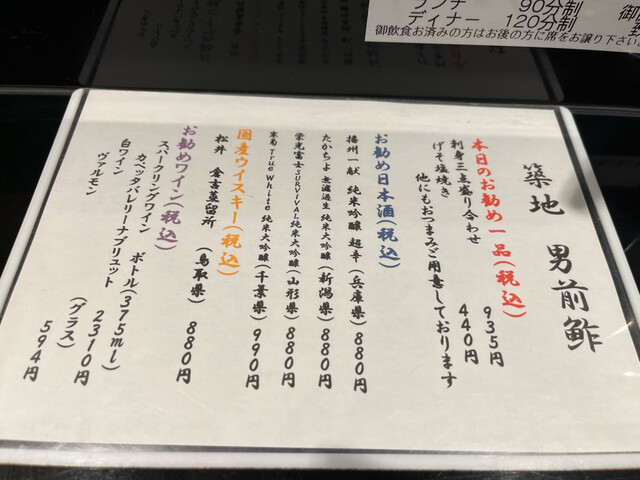 ランチ 90分制
ディナー 120分制
御飲食お済みの方はお後の方に席をお譲り下さい
築地 男前鮓
本日のお勧め一品(税込)
刺身三点盛り合わせ 935円
げそ塩焼き 440円
他にもおつまみご用意しております
お勧め日本酒(税込)
播州一献 純米吟醸 超辛(兵庫県)880円
たかちよ 無濾過生 純米大吟醸(新潟県)880円
栄光冨士SURVIVAL純米大吟醸(山形県)880円
寒菊True White 純米大吟醸(千葉県)990円
国産ウイスキー(税込)
松井 倉吉蒸留所(鳥取県)880円
お勧めワイン(税込)
スパークリングワイン ボトル(375ml)
カペッタバレリーナブリュット 2310円
白ワイン (グラス)
ヴァルモン 594円